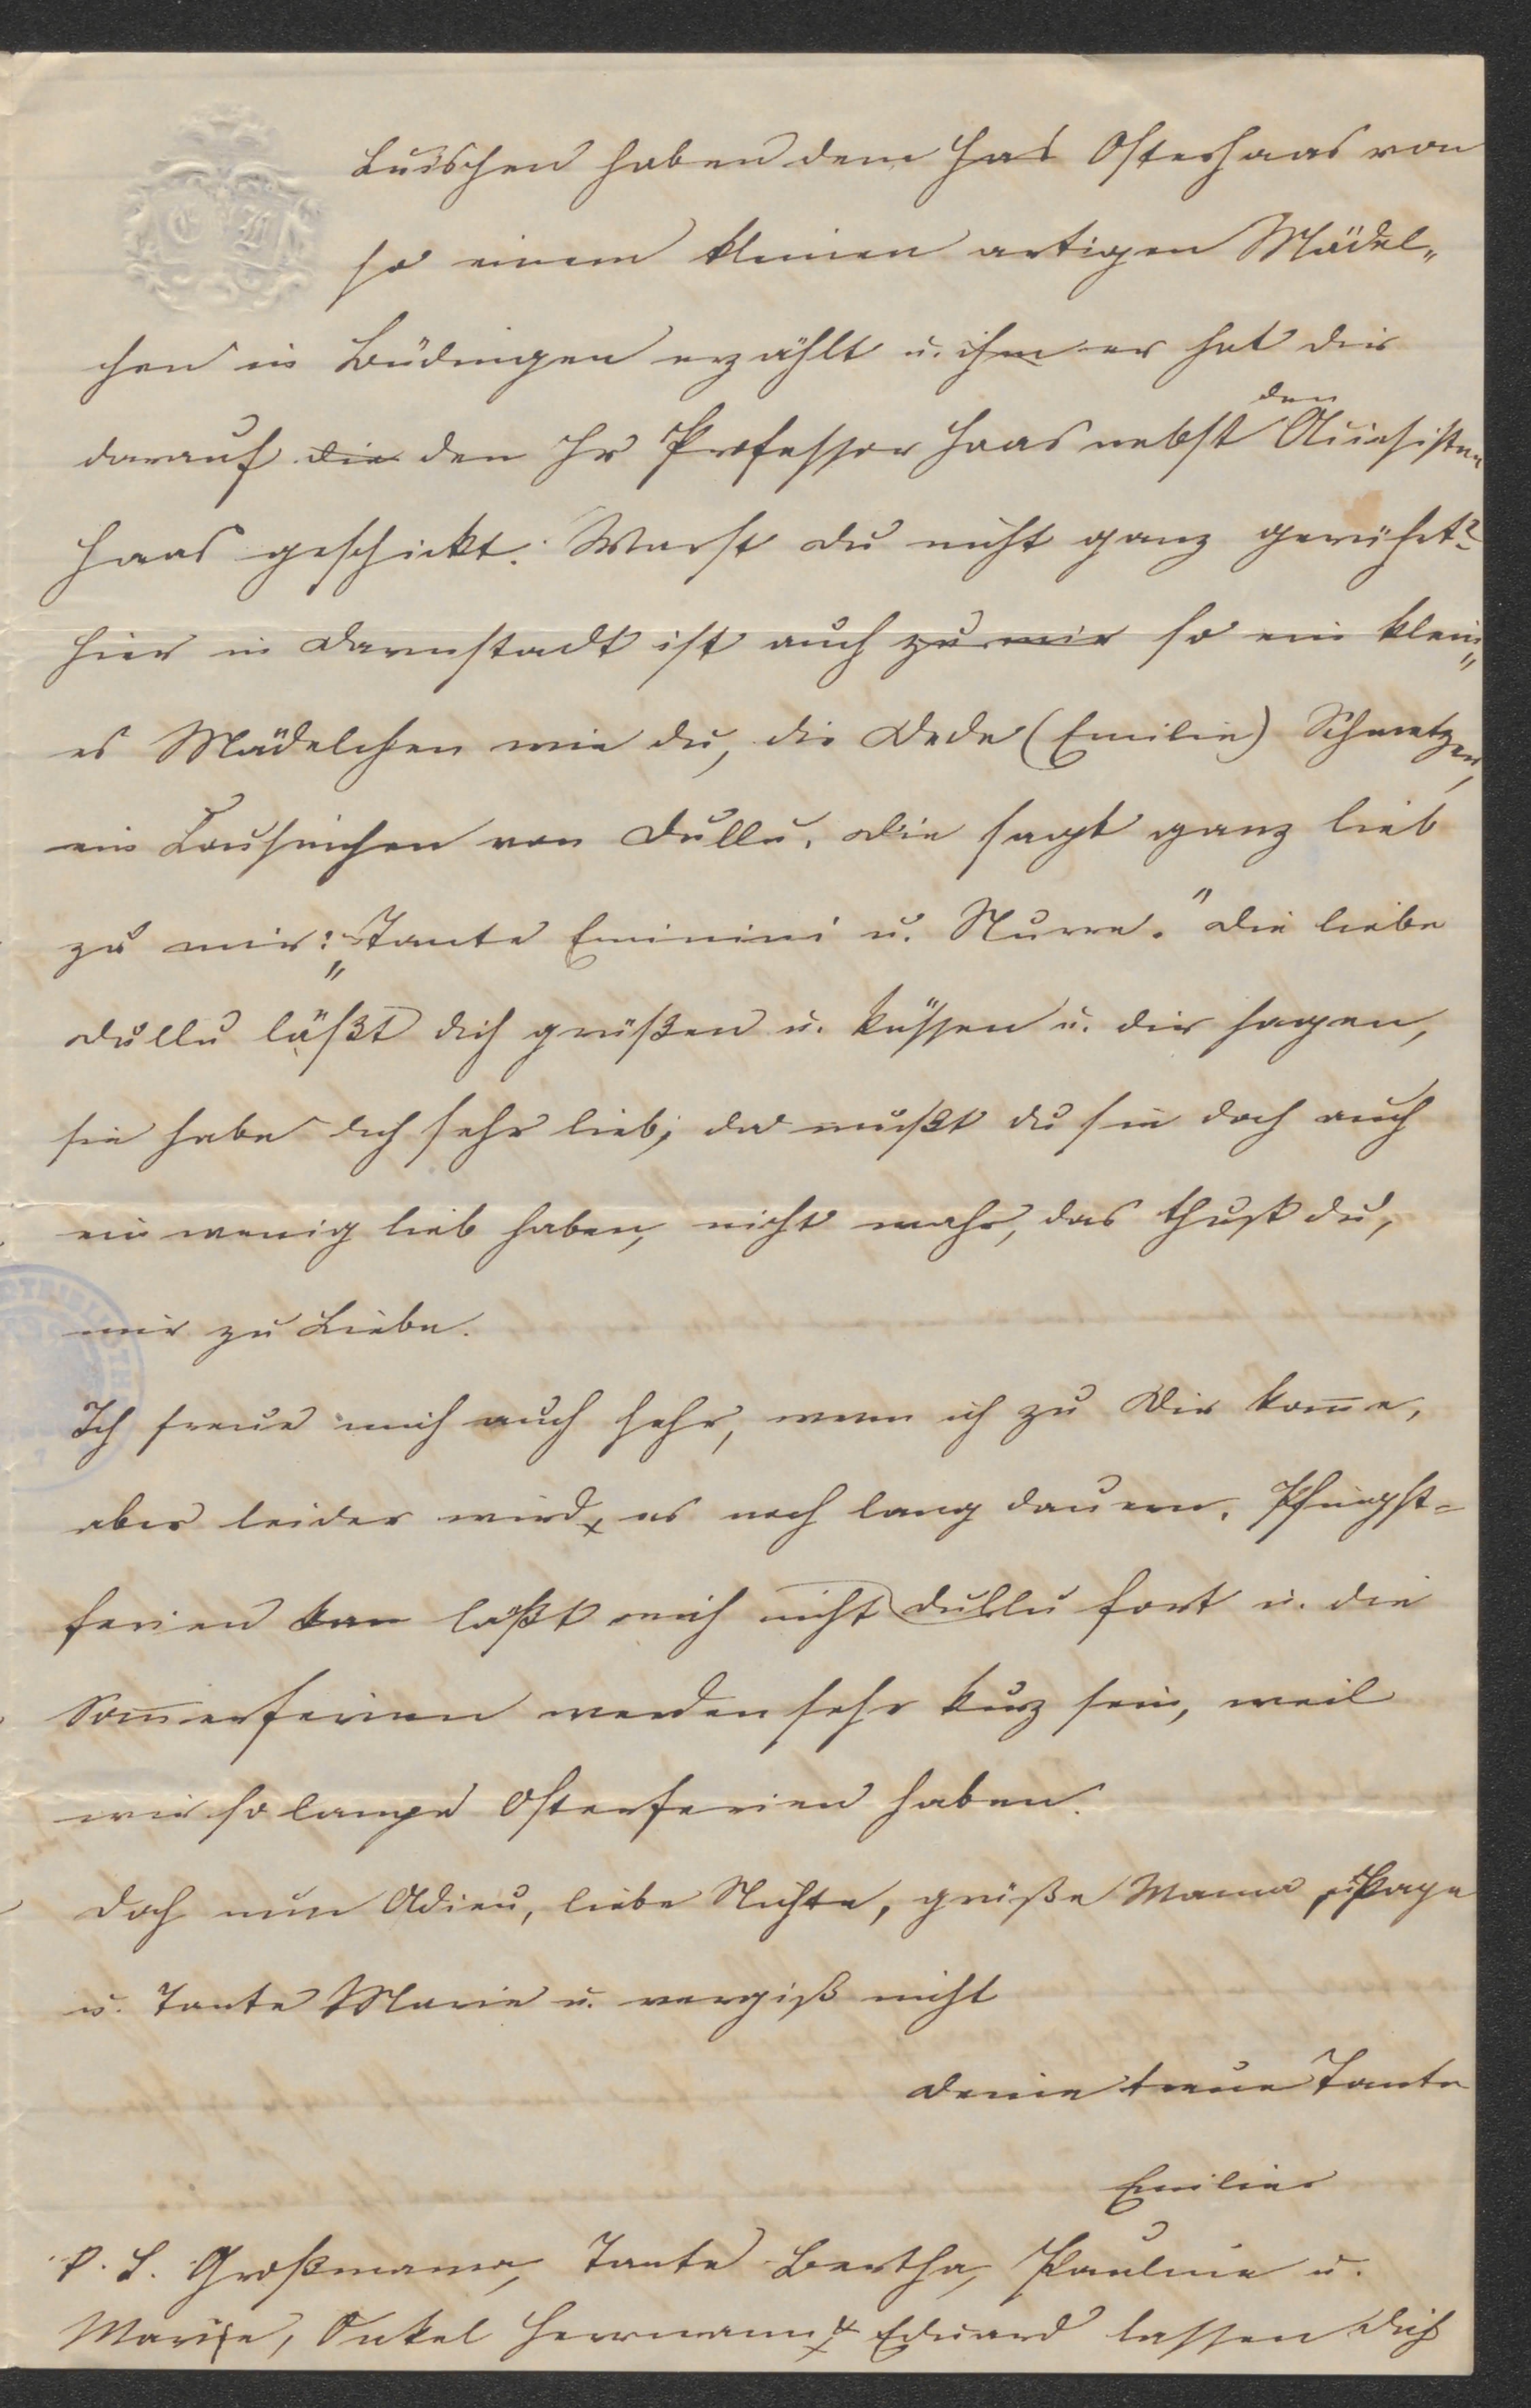 Luischen haben dem Has Osterhaas von
so einem kleinen artigen Mädel„
chen in Büdingen erzählt u. ihm er hat dir
darauf die den Hr Professor Haas nebst den
Haas geschickt. Warst du nicht ganz gerührt?
Hier in Darmstadt ist auch zu mir so ein klein„
es Mädelchen wie du, die Dede (Emilie)
ein Cousinchen von Dullu. Die sagt ganz lieb
zu mir: „Tante Eminini u. Nurre." Die liebe
Dullu läßt dich grüßen u. küssen u. dir sagen,
sie habe dich sehr lieb; da mußt du sie doch auch
ein wenig lieb haben, nicht wahr, das thust du,
mir zu Liebe.
Ich freue mich auch sehr, wenn ich zu Dir kom̄e,
aber leider wird es noch lang dauern. Pfingst-
ferien kan läßt mich nicht Dullu fort u. die
Som̄erferien werden sehr kurz sein, weil
wir so lange Osterferien haben.
Doch nun Adieu, liebe Nichte, grüße Mama, u Papa
u. Tante Marie u. vergiß nicht
Deine treue Tante
Emilie
P. S. Großmama, Tante Bertha, Pauline u.
Marie, Onkel Herrmann & Eduard lassen dich